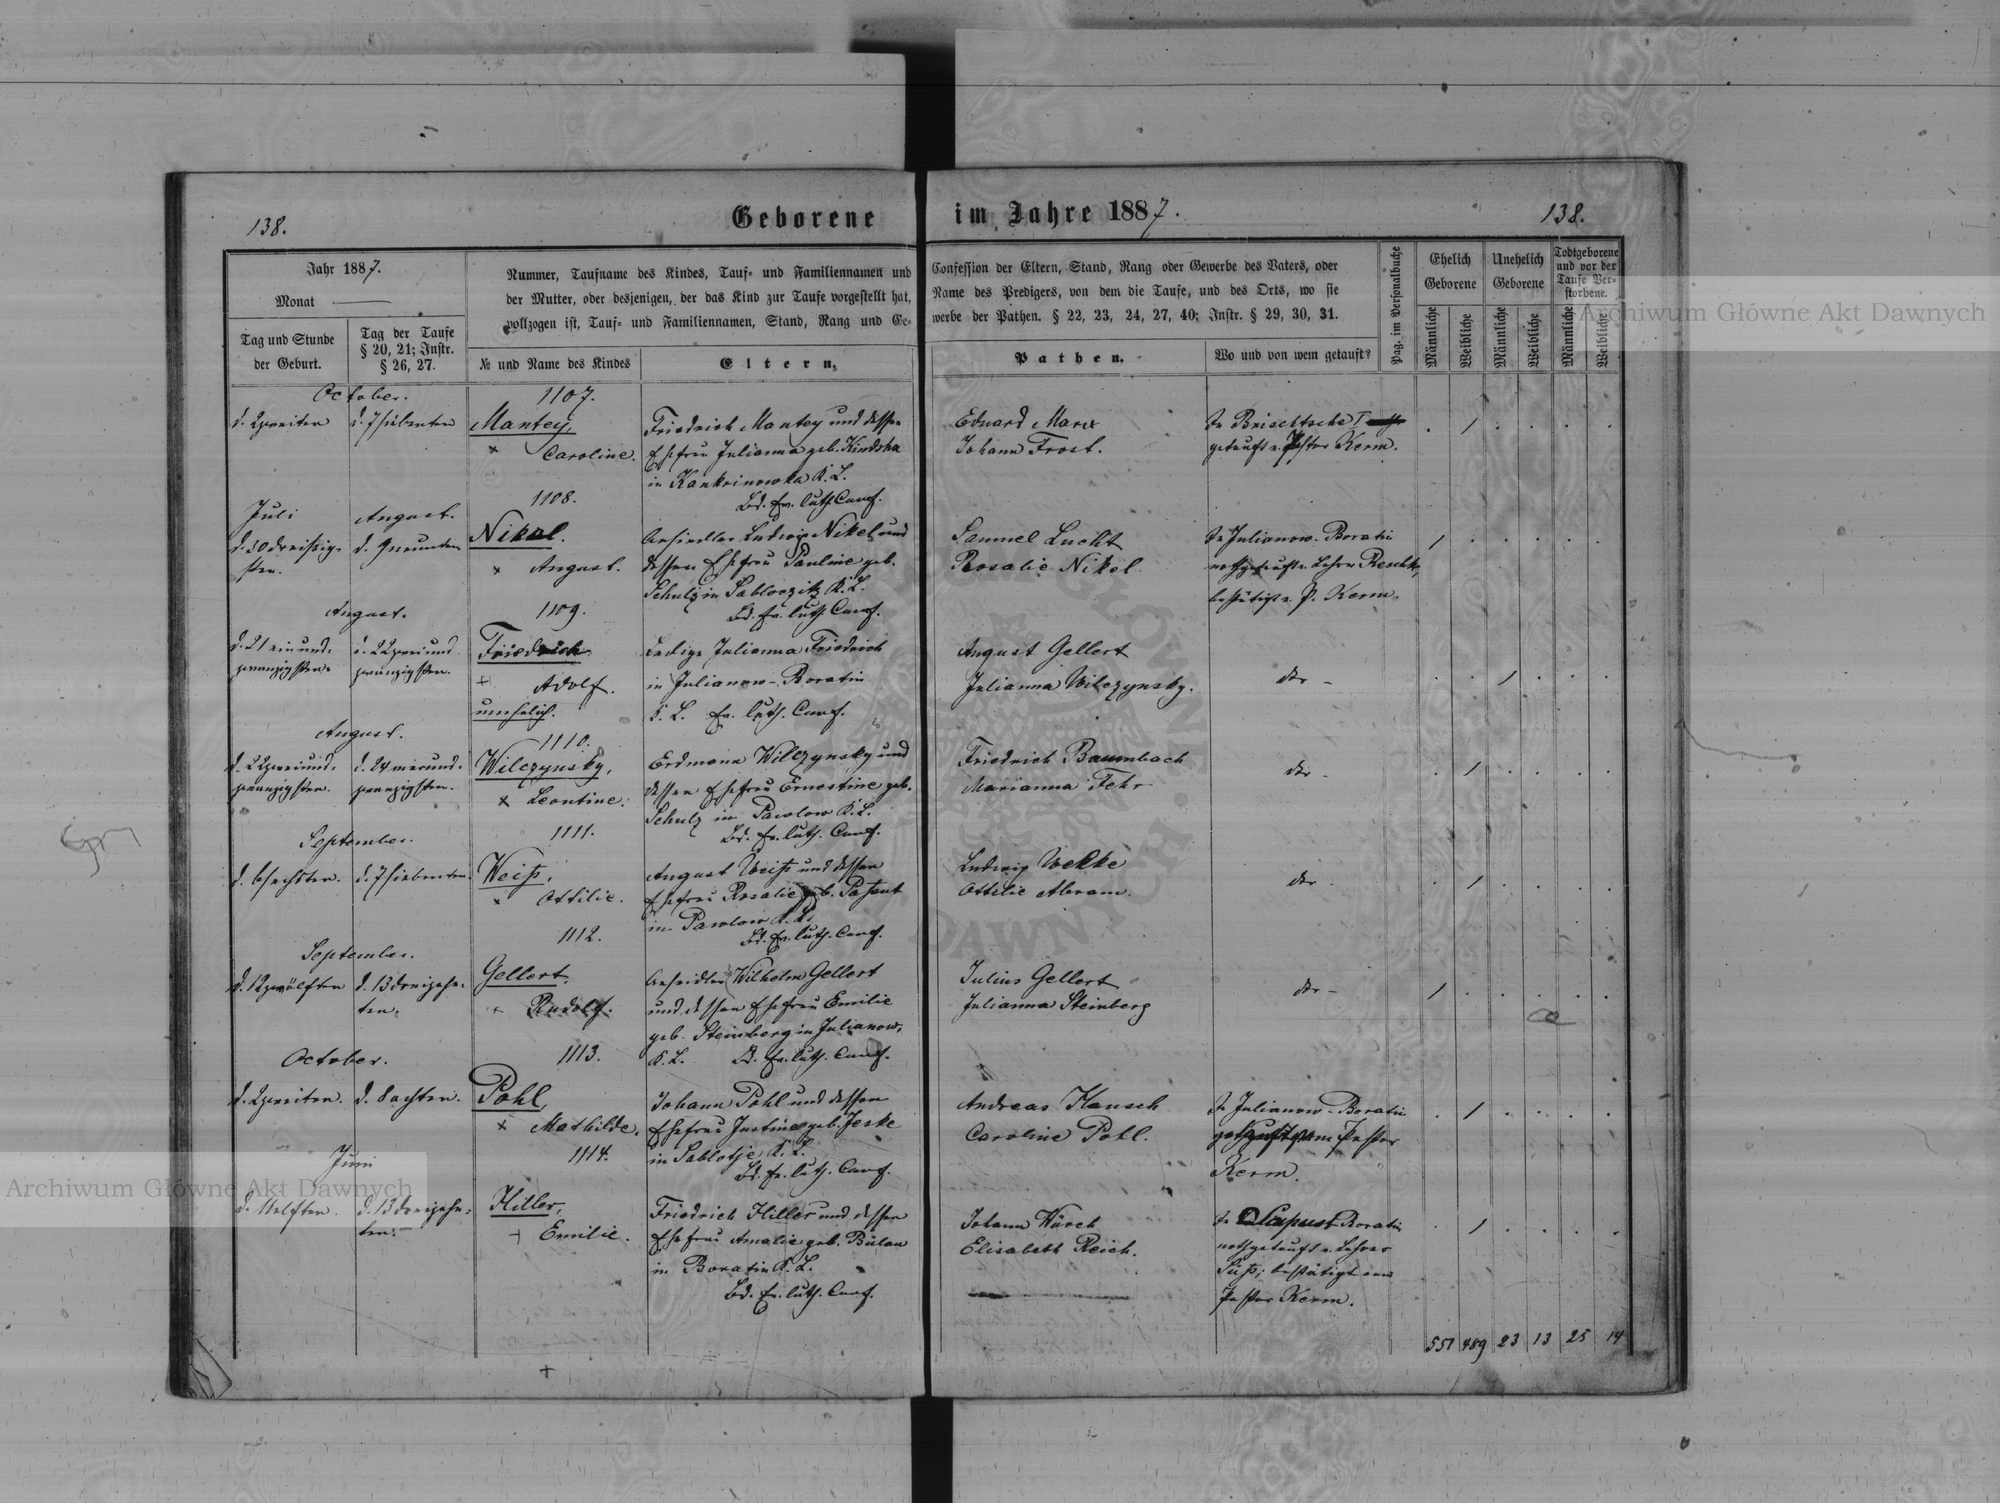 138.
Geborene
im Jahre 1887.
138.
Jahr 1887.
Monat
Tag und Stunde
der Geburt.
Tag der Taufe
§ 20, 21; Instr.
§ 26, 27.
Nummer, Taufname des Kindes, Tauf- und Familiennamen und
der Mutter, oder desjenigen, der das Kind zur Taufe vorgestellt hat,
vollzogen ist, Tauf- und Familiennamen, Stand, Rang und Ge-
№ und Name des Kindes
Eltern.
Confession der Eltern, Stand, Rang oder Gewerbe des Vaters, oder
Name des Predigers, von dem die Taufe, und des Orts, wo sie
werbe der Pathen. § 22, 23, 24, 27, 40; Instr. § 29, 30, 31.
Pathen.
Wo und von wem getauft?
Pag. im Personalbuche
Ehelich
Geborene
Unehelich
Geborene
Todtgeborene
und vor der
Taufe Ver-
storbene.
Männliche
Weibliche
Männliche
Weibliche
Männliche
Weibliche
October.
1107.
d. 2 zweiten
d. 7 siebenten
Mantey,
Caroline.
Friedrich Mantey und dessen
Ehefrau Julianna geb. Kindsha
in Kankrinowka K. L.
Bd. Ev. luth. Conf.
Eduard Marx
Johann Frost.
getauft v. Pastor Kerm.
1108.
Juli
August.
d. 30 dreißig-
sten.
d. 9 neunten
Nikel.
August.
Ansiedler Ludwig Nikel und
dessen Ehefrau Pauline geb.
Schulz in Sabloczitz K. L.
Bd. Ev. luth. Conf.
Samuel Lucht
Rosalie Nikel
In Julianow-Boratin
nothgetauft v. Lehrer
bestätigt v. P. Kerm.
August.
1109.
d. 21 einund-
zwanzigsten.
d. 22 zweiund-
zwanzigsten.
Friedrich
Adolf.
unehelich.
Ledige Julianna Friedrich
in Julianow-Boratin
K. L. Ev. luth. Conf.
August Gellert
Julianna Wilczynsky.
dto -
August.
1110.
d. 22 zweiund-
zwanzigsten.
d. 24 vierund-
zwanzigsten.
Wilczynsky,
Leontine.
Erdmann Wilczynsky und
dessen Ehefrau Ernestine geb.
Schulz in Pawlow K. L.
Bd. Ev. luth. Conf.
Friedrich Baumbach
Marianna Fehr
dto -
September.
1111.
d. 6 sechsten.
d. 7 siebenten.
Weiß,
Ottilie.
August Weiß und dessen
Ehefrau Rosalie geb.
in Pawlow K. L.
Bd. Ev. luth. Conf.
Ludwig Welke
Ottilie Abram.
dto -
September.
1112.
d. 12 zwölften
d. 13 dreizehn-
ten.
Gellert,
Rudolf.
Ansiedler Wilhelm Gellert
und dessen Ehefrau Emilie
geb. Steinberg in Julianow,
K. L. Bd. Ev. luth. Conf.
Julius Gellert
Julianna Steinberg
dto -
October.
1113.
d. 2 zweiten.
d. 8 achten.
Pohl,
Mathilde.
Johann Pohl und dessen
Ehefrau Justine geb. Jeske
in Sablotje, K. L.
Bd. Ev. luth. Conf.
Andreas Hansch
Caroline Pohl.
In Julianow-Boratin
Pastor
Kerm.
Juni
1114.
d. 11 elften.
d. 13 dreizehn-
ten.
Hiller,
Emilie.
Friedrich Hiller und dessen
Ehefrau Amalie geb. Bülau
in Boratin K. L.
Bd. Ev. luth. Conf.
Johann Würch
Elisabeth Reich.
Boratin
nothgetauft v. Lehrer
Süß; bestätigt vom
Pastor Kerm.
551 489 23 13 25 14
Archiwum Główne Akt Dawnych
Archiwum Główne Akt Dawnych